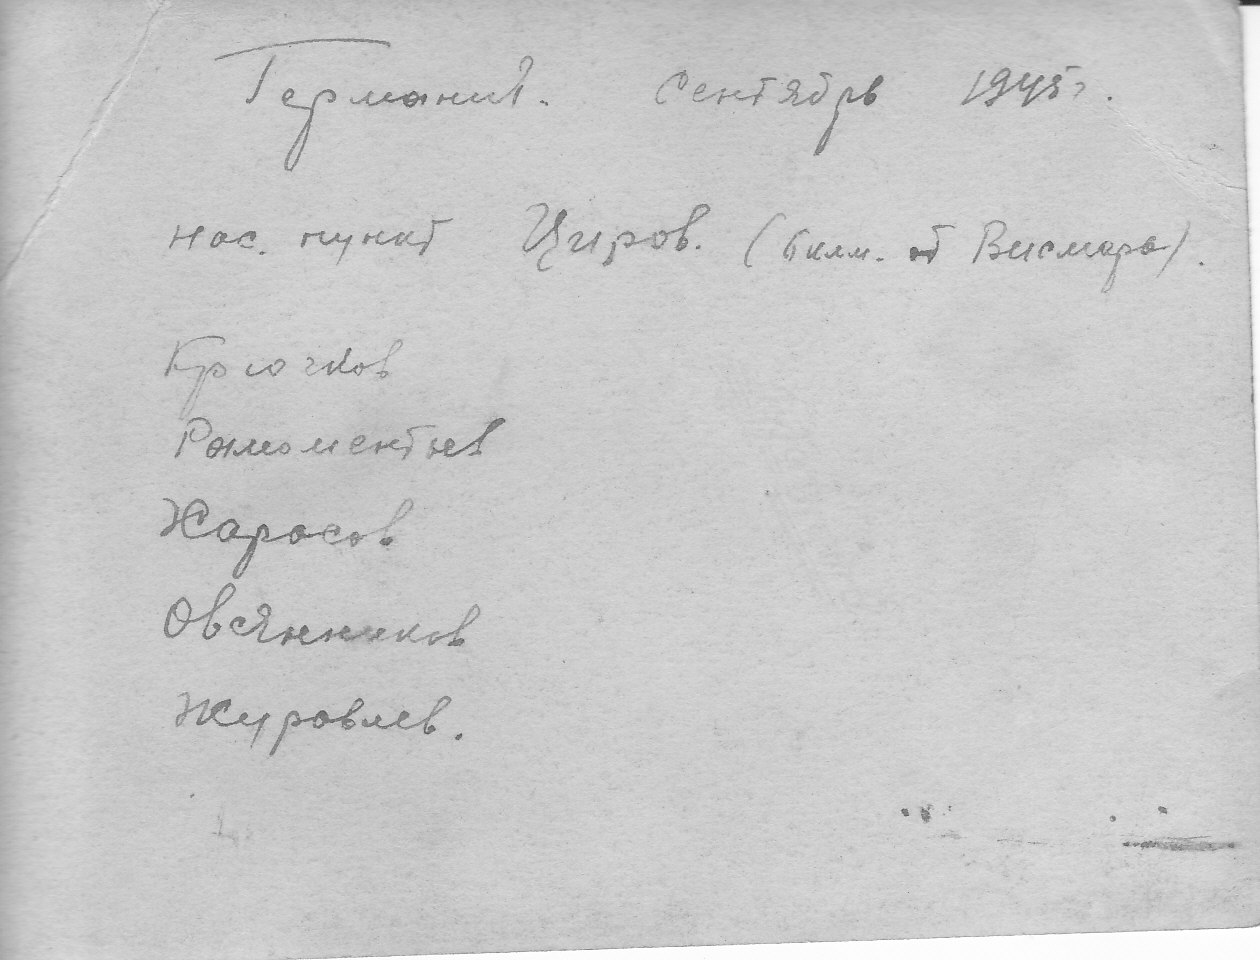 Германия. Сентябрь 1945 г.
нас. пункт Циров. (6 клм. от Висмара).
Крючков
Харасов
Овсянников
Журавлев.